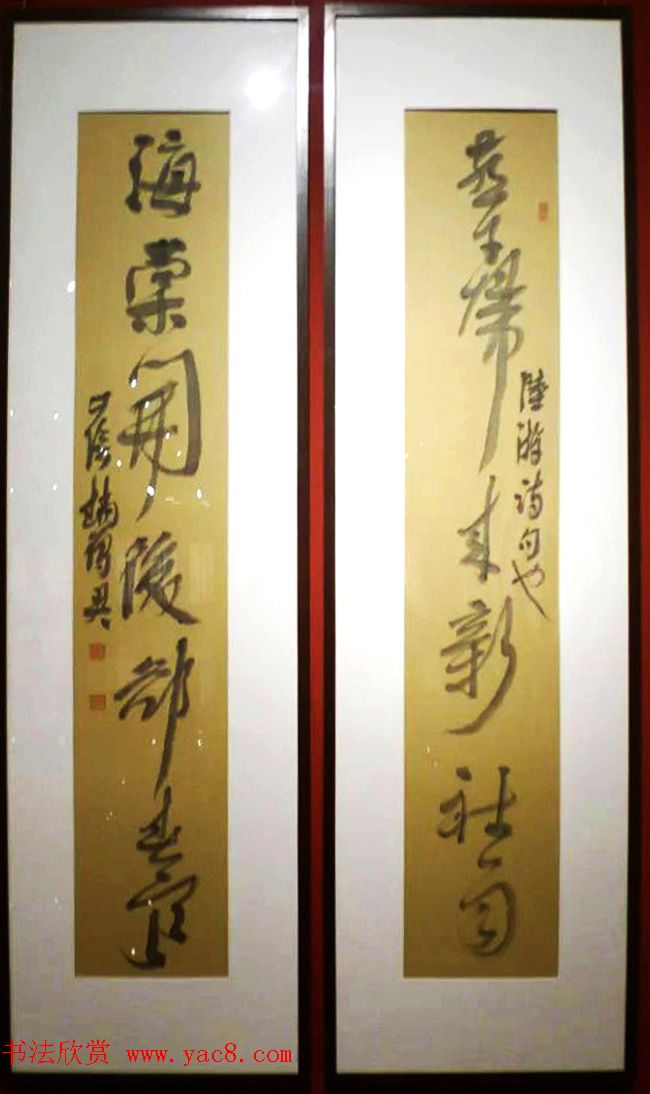 燕子歸來新社雨
陸游詩句也
海棠開後卻春寒
书法欣赏 www.yac8.com